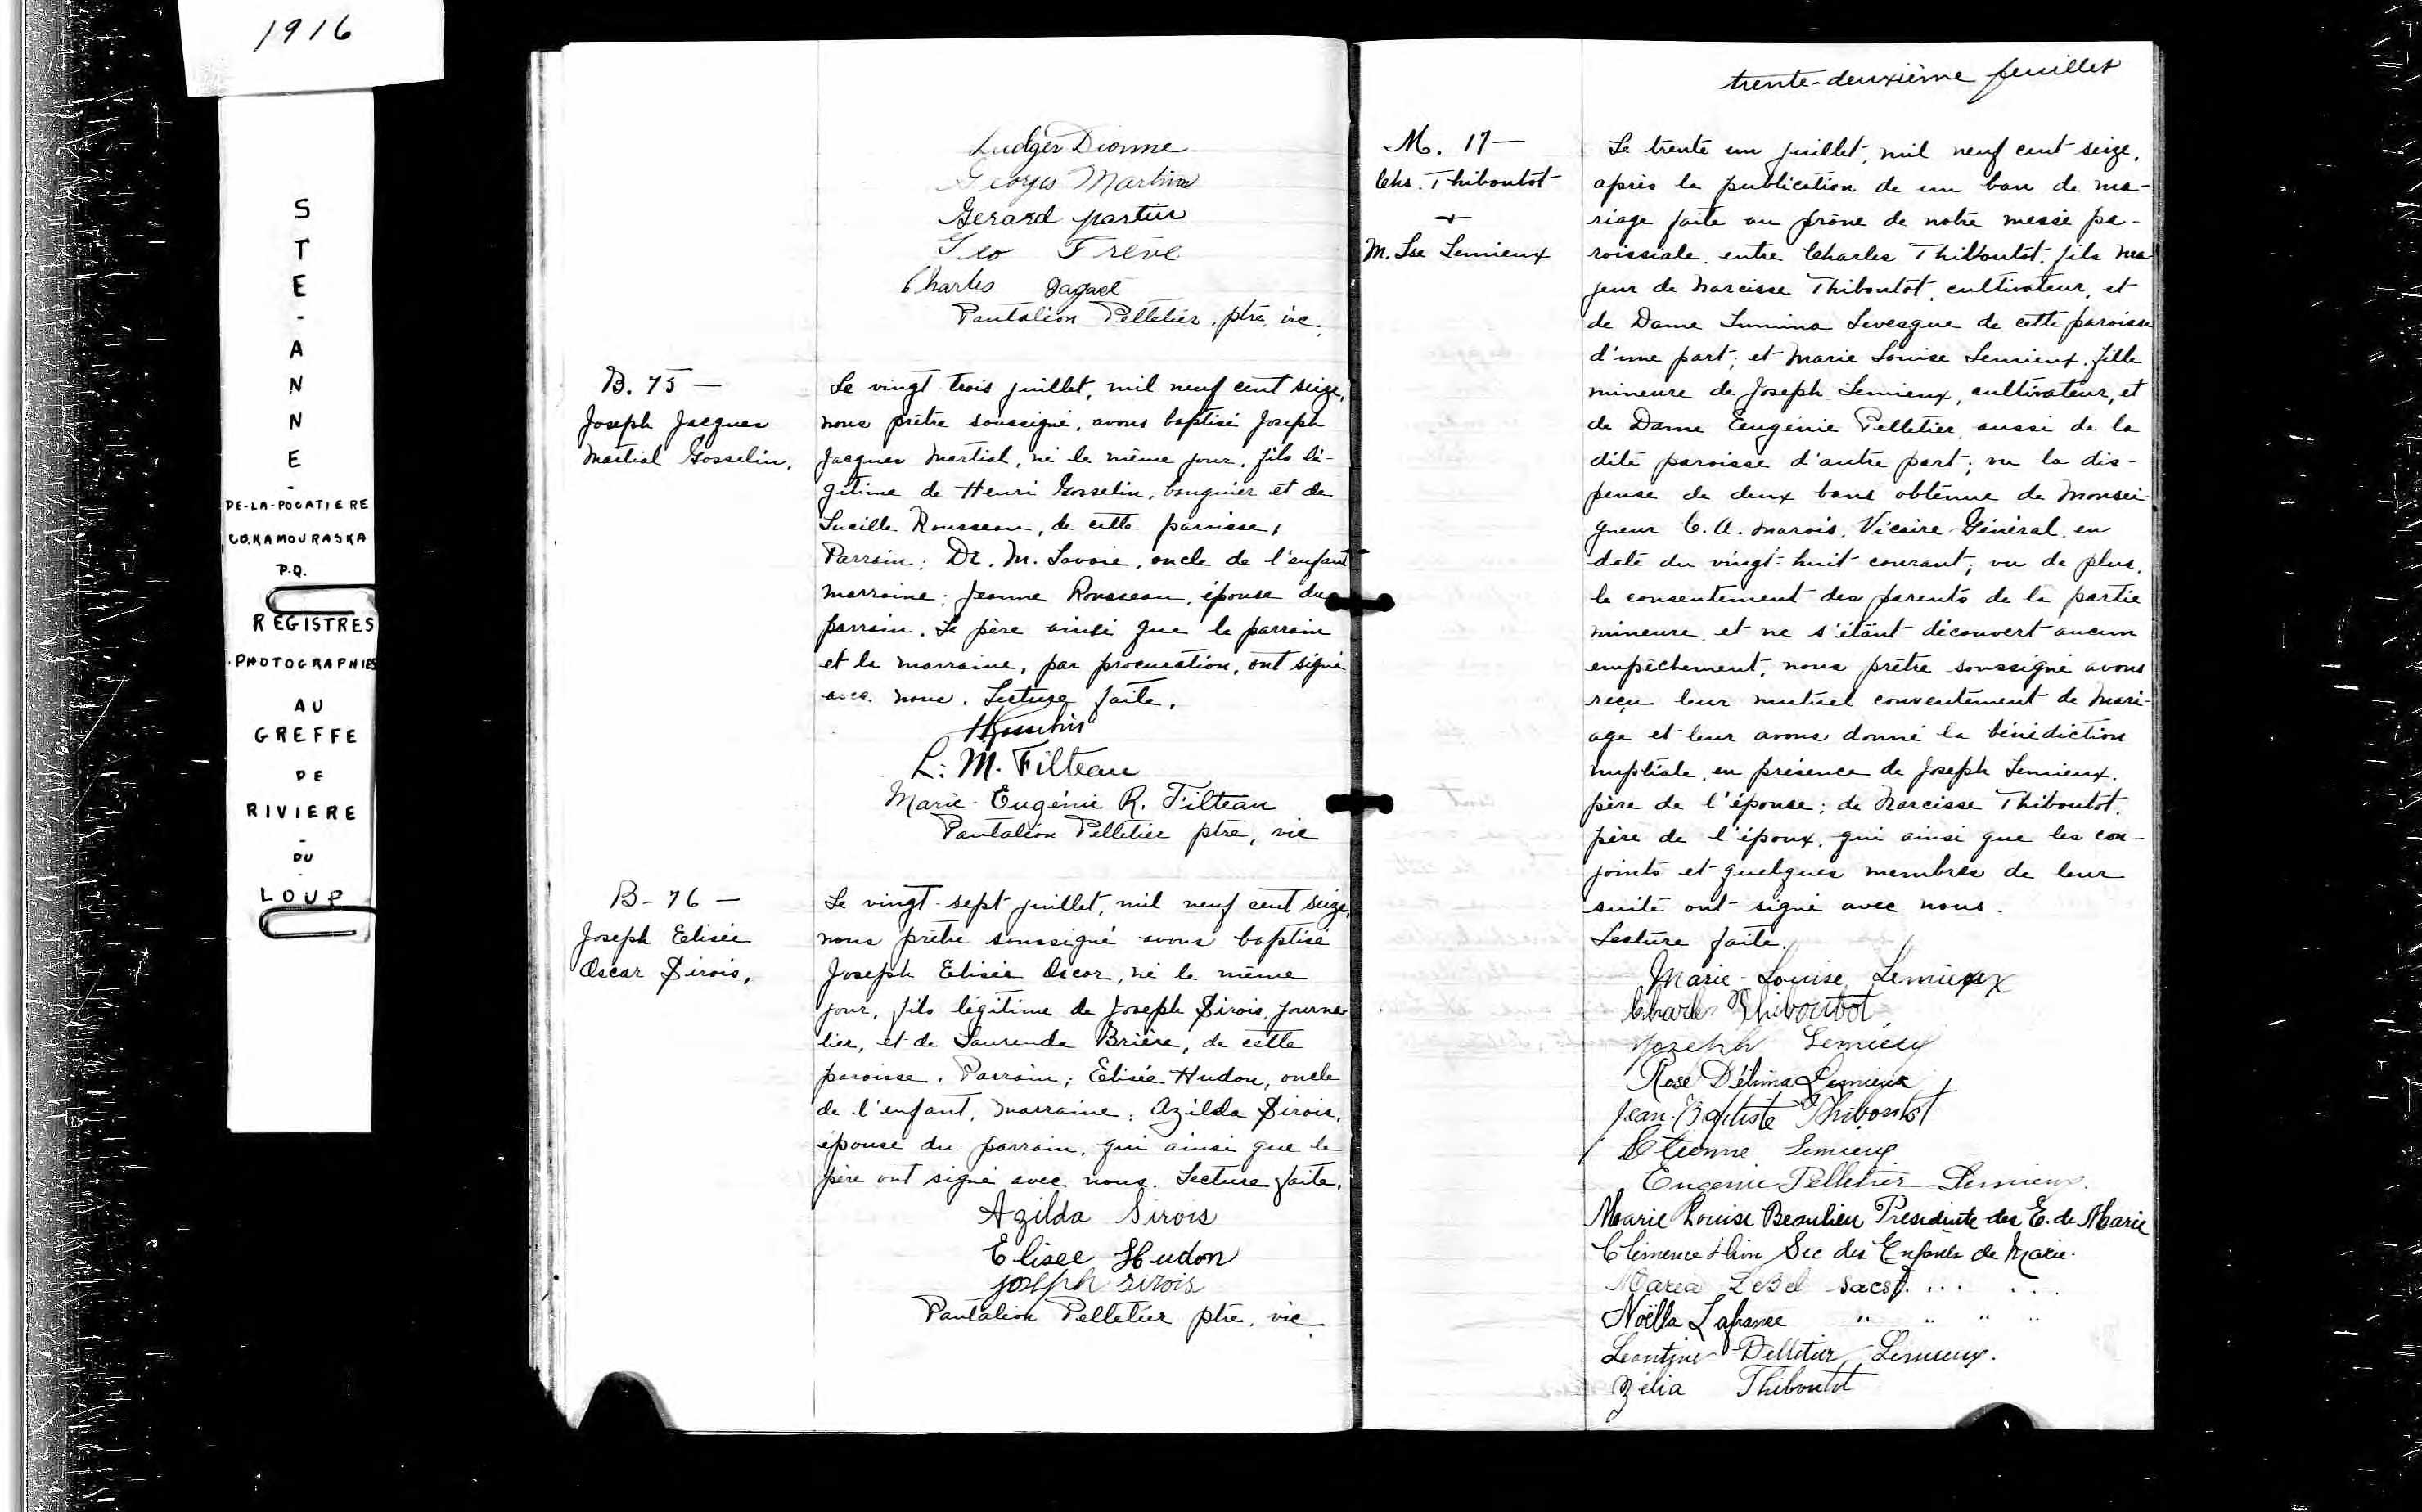 1916
S
T
E
-
A
N
N
E
-
DE-LA-POCATIERE
CO.KAMOURASKA
P.Q.
REGISTRES
PHOTOGRAPHIES
AU
GREFFE
DE
RIVIERE
-
DU
-
LOUP
Ludger Dionne
Georges Martin
Gerard
Geo Trêve
Charles Paquet
Pantaléon Pelletier. ptre, vic.
B. 75 —
Joseph Jacques
Martial Gosselin.
Le vingt trois juillet, mil neuf cent seize,
nous prêtre soussigné, avons baptisé Joseph
Jacques Martial, né le même jour, fils lé-
gitime de Henri Gosselin, banquier et de
Lucille Rousseau, de cette paroisse,
Parrain: Dr. M. Savoie, oncle de l'enfant
marraine: Jeanne Rousseau, épouse du
parrain. Le père ainsi que le parrain
et la marraine, par procuration, ont signé
avec nous. Lecture faite.
HGosselin
L. M. Filteau
Marie-Eugénie R. Filteau
Pantaléon Pelletier ptre, vic
B- 76 —
Joseph Elisée
Oscar Sirois,
Le vingt-sept juillet, mil neuf cent seize,
nous prêtre soussigné avons baptisé
Joseph Elisée Oscar, né le même
jour, fils légitime de Joseph Sirois, journa
lier, et de Laurenda Brière, de cette
paroisse. Parrain; Elisée Hudon, oncle
de l'enfant, marraine: Azilda Sirois,
épouse du parrain, qui ainsi que le
père ont signé avec nous. Lecture faite.
Azilda Sirois
Elisee Hudon
joseph sirois
Pantaléon Pelletier ptre. vic.
trente-deuxième feuillet
M. 17 —
Chs. Thiboutot
+
M. Lse Lemieux
Le trente un juillet, mil neuf cent seize,
après la publication de un ban de ma-
riage faite au prône de notre messe pa-
roissiale, entre Charles Thiboutot, fils ma
jeur de Narcisse Thiboutot, cultivateur, et
de Dame Lumina Levesque de cette paroisse
d'une part; et Marie Louise Lemieux, fille
mineure de Joseph Lemieux, cultivateur, et
de Dame Eugénie Pelletier aussi de la
dite paroisse d'autre part; vu la dis-
pense de deux bans obtenue de Monsei-
gneur C. A. Marois, Vicaire Général, en
date du vingt-huit courant; vu de plus,
le consentement des parents de la partie
mineure, et ne s'étant découvert aucun
empêchement, nous prêtre soussigné avons
reçu leur mutuel consentement de Mari-
age et leur avons donné la bénédiction
nuptiale, en présence de Joseph Lemieux,
père de l'épouse; de Narcisse Thiboutot,
père de l'époux, qui ainsi que les con-
joints et quelques membres de leur
suite ont signé avec nous.
Lecture faite.
Marie-Louise Lemieux
Charles Thiboutot
Joseph Lemieux
Rose Délima Lemieux
Jean-Baptiste Thiboutot
Etienne Lemieux
Eugenie Pelletier-Lemieux.
Marie Louise Beaulieu Présidente des E. de Marie
Clémence Sec des Enfants de Marie.
Maria LeBel sacst. ... ...
Noëlla Lafrance " " " "
Leontine Pelletier Lemieux.
Zélia Thiboutot